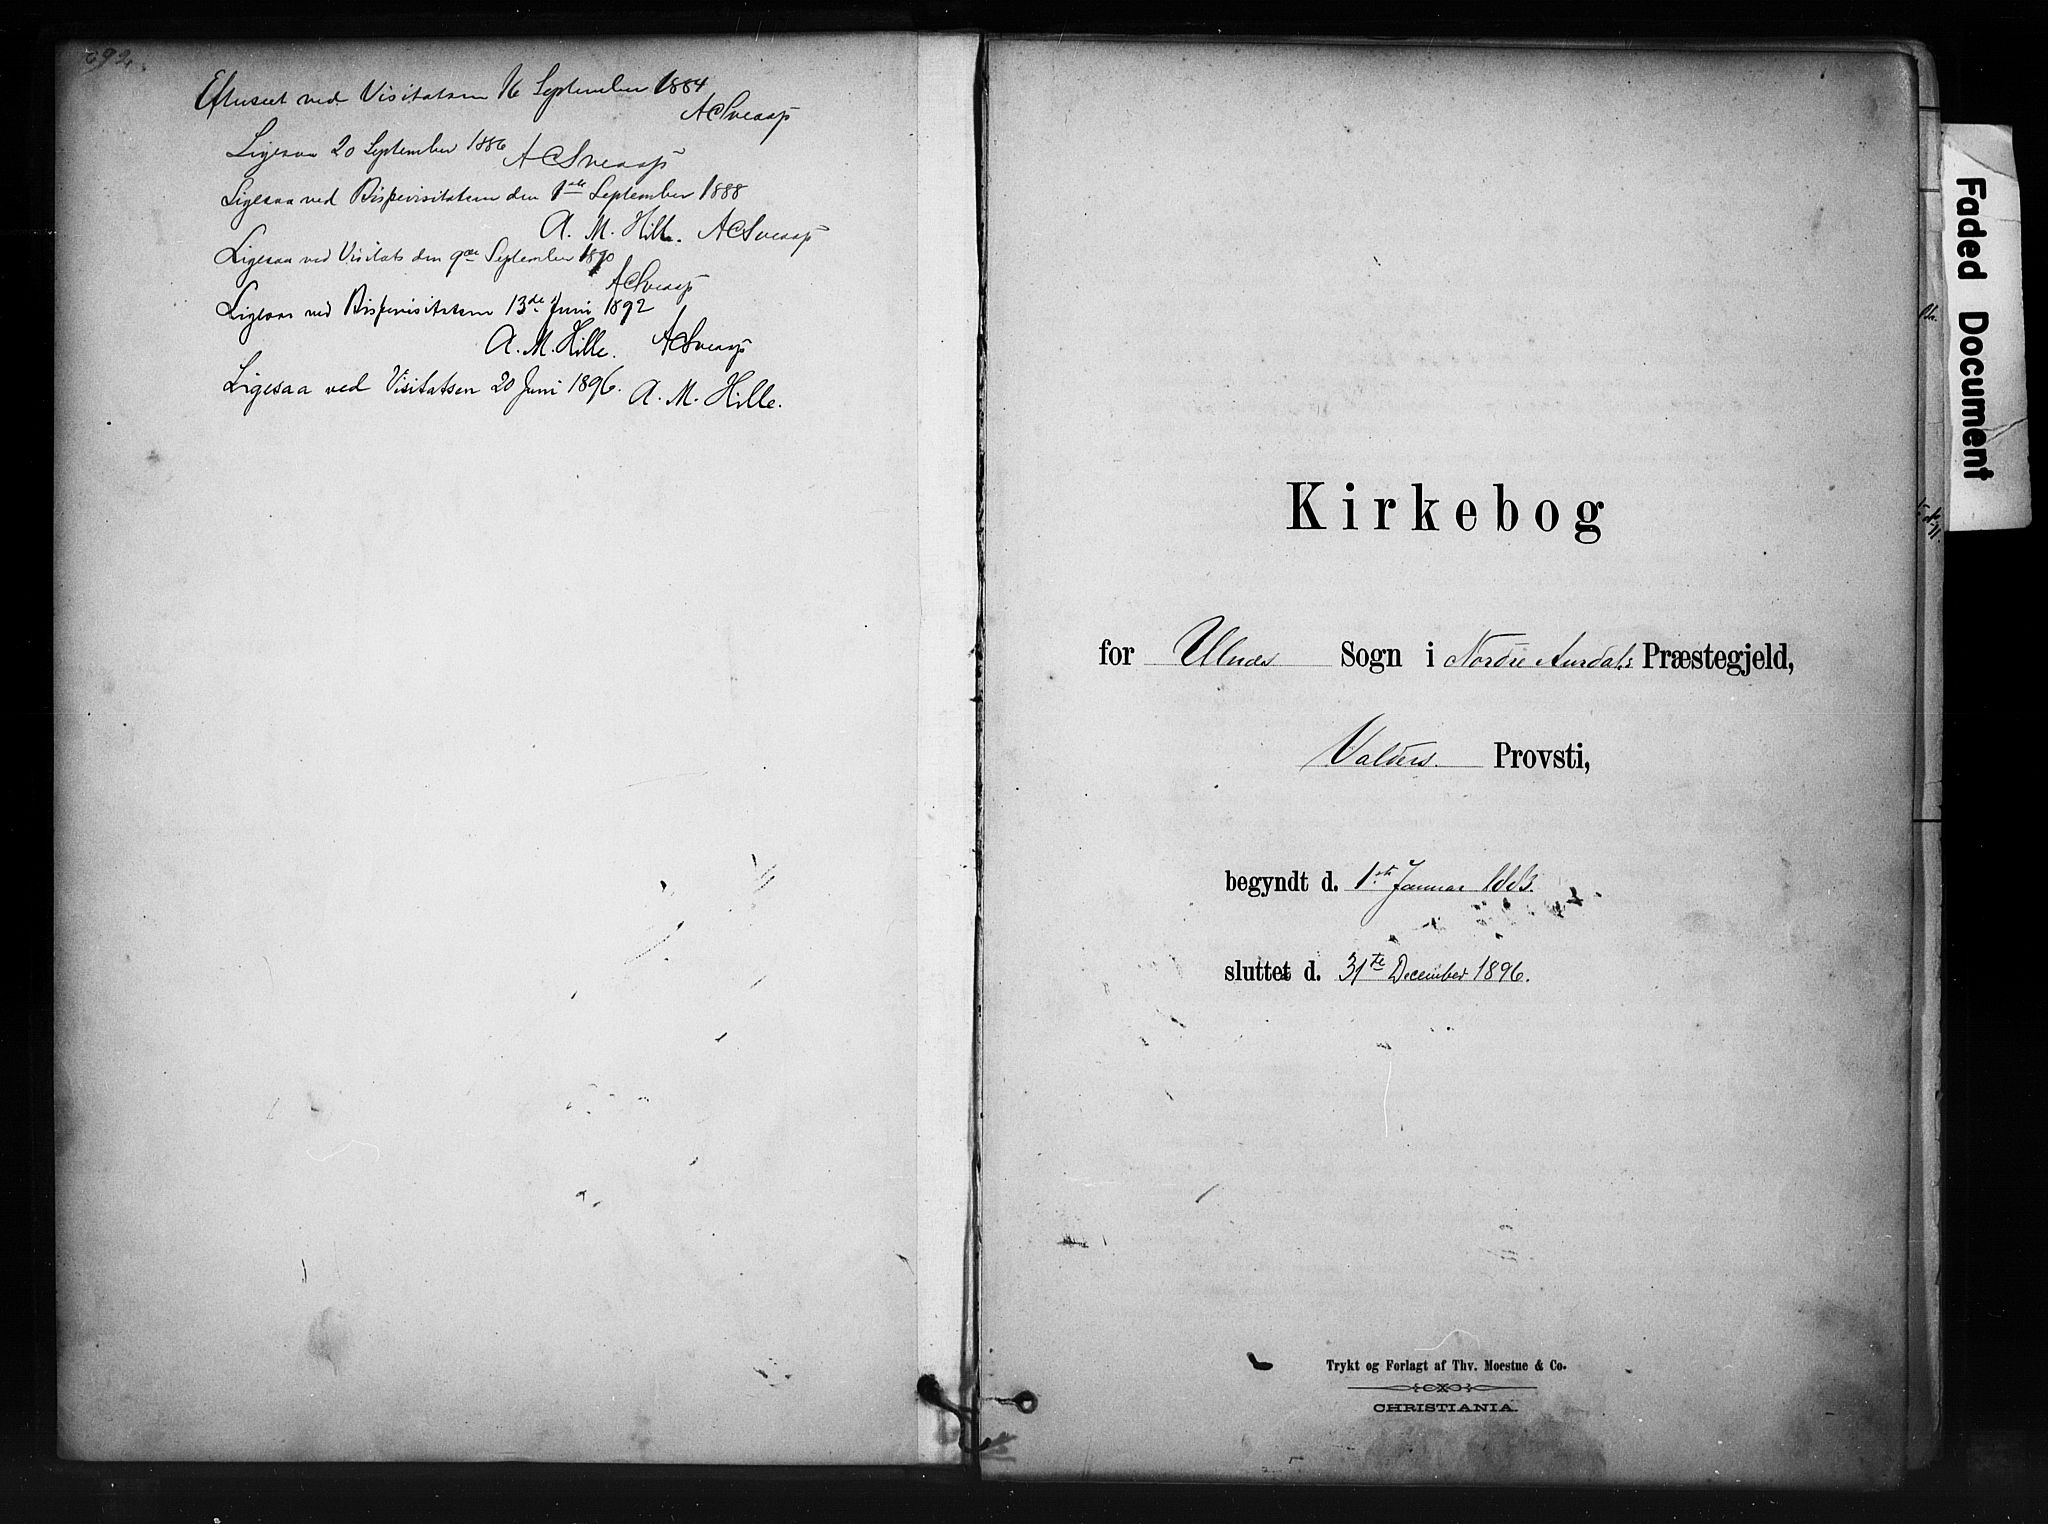 Efterseet ved Visitatsen 16 September 1884
ACSveaas
Ligesaa 20 September 1886 ACSveaas
Ligesaa ved Bispevisitatsen den 1ste September 1888
A. M. Hille. ACSveaas
Ligesaa ved Visitats den 9de September 1890
ACSveaas
Ligesaa ved Bispevisitatsen 13de Juni 1892
A. M. Hille. ACSveaas
Ligesaa ved Visitatsen 20 Juni 1896. A. M. Hille.
Kirkebog
for Ulnes Sogn i Nordre Aurdals Præstegjeld,
Valders Provsti,
begyndt d. 1ste Januar 1883.
sluttet d. 31te December 1896.
Trykt og Forlagt af Thv. Moestue & Co.
CHRISTIANIA.
Faded Document